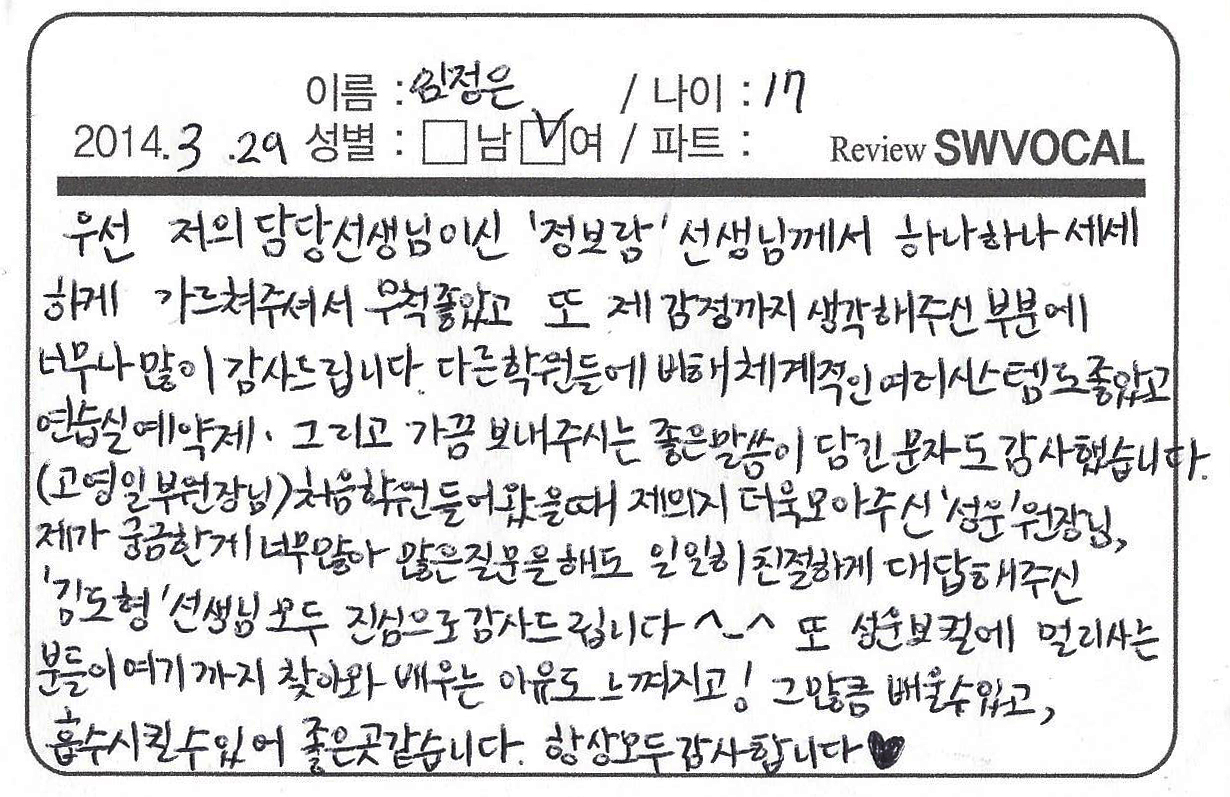 이름 : 임정은 / 나이 : 17
2014.3.29 성별 : □남 ☑여 / 파트 : Review SWVOCAL
우선 저의 담당선생님이신 '정보람' 선생님께서 하나하나 세세
하게 가르쳐주셔서 무척좋았고 또 제 감정까지 생각해주신 부분에
너무나 많이 감사드립니다. 다른학원들에 비해 체계적인 여러시스템도좋았고
연습실예약제, 그리고 가끔 보내주시는 좋은말씀이 담긴 문자도 감사했습니다.
(고영일부원장님) 처음학원들어왔을때 제의지 더욱모아주신 '성운'원장님,
제가 궁금한게 너무많아 많은질문을해도 일일히 친절하게 대답해주신
'김도형'선생님 모두 진심으로감사드립니다 ^-^ 또 성운보컬에 멀리사는
분들이 여기까지 찾아와 배우는 이유도 느껴지고! 그만큼 배울수있고,
흡수시킬수있어 좋은곳같습니다. 항상모두감사합니다♥